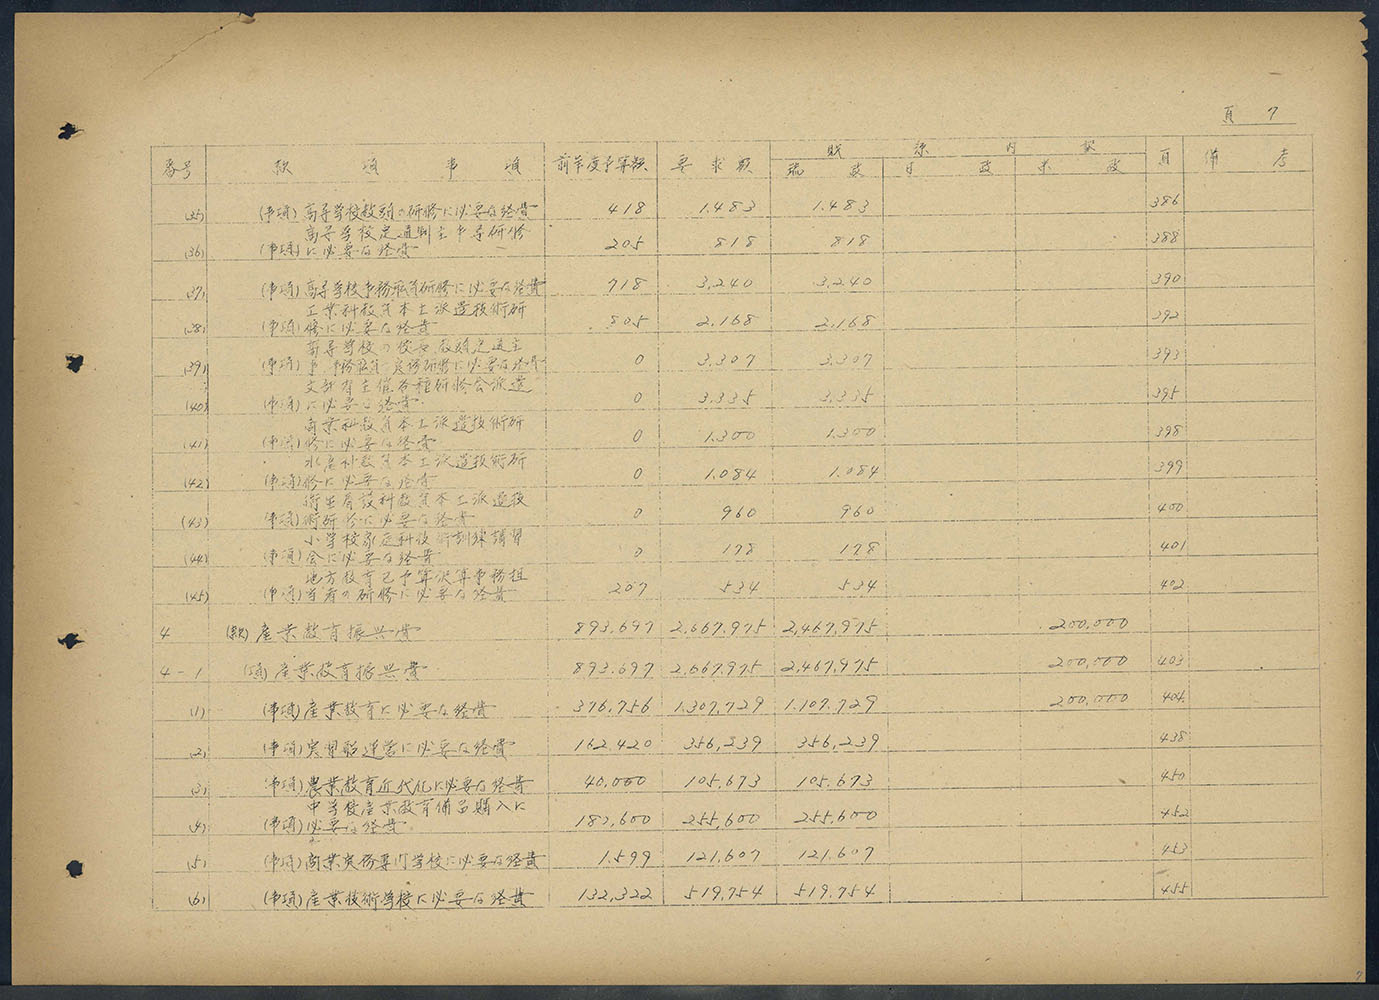 頁 7
財源内訳
番号 款項事項 前年度予算額 要求額 琉政 日政 米政 頁 備考
(35) (事項) 高等学校教頭の研修に必要な経費 418 1.483 1.483 386
高等学校定通制主事等研修
(36) (事項) に必要な経費 205 818 818 388
(37) (事項) 高等学校事務職員研修に必要な経費 718 3,240 3,240 390
工業科教員本土派遣技術研
(38) (事項) 修に必要な経費 805 2.168 2.168 392
高等学校の校長、教頭定通主
(39) (事項) 事、事務職員 実務研修に必要な経費 0 3.307 3.307 393
文部省主催各種研修会派遣
(40) (事項) に必要な経費 0 3.335 3.335 395
商業科教員本土派遣技術研
(41) (事項) 修に必要な経費 0 1.300 1.300 398
水産科教員本土派遣技術研
(42) (事項) 修に必要な経費 0 1.084 1.084 399
衛生看護科教員本土派遣技
(43) (事項) 術研修に必要な経費 0 960 960 400
小学校家庭科技術訓練講習
(44) (事項) 会に必要な経費 0 178 178 401
地方教育区予算決算事務担
(45) (事項) 当者の研修に必要な経費 207 534 534 402
4 (款) 産業教育振興費 893.697 2.667.975 2,467,975 200,000
4-1 (項) 産業教育振興費 893.697 2,667,975 2,467,975 200,000 403
(1) (事項) 産業教育に必要な経費 376,756 1.307,729 1.107.729 200,000 404
(2) (事項) 実習船運営に必要な経費 162.420 356,239 356,239 438
(3) (事項) 農業教育近代化に必要な経費 40,000 105,673 105.673 450
中学校産業教育備品購入に
(4) (事項) 必要な経費 255,600 255,600 452
(5) (事項) 商業実務専門学校に必要な経費 1.599 121,607 121.607 453
(6) (事項) 産業技術学校に必要な経費 132,322 519,754 519,754 455
7